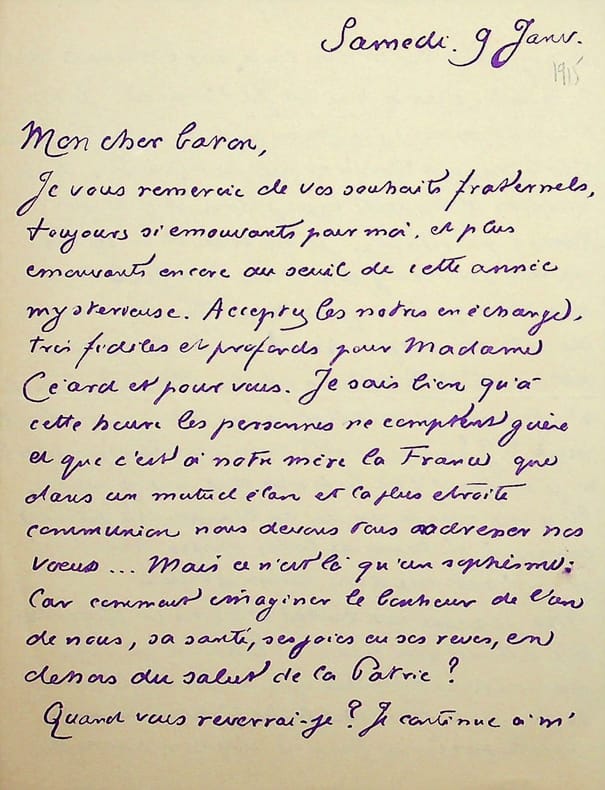 Samedi. 9 Janv.
1915
Mon cher baron,
Je vous remercie de vos souhaits fraternels,
toujours si emouvants pour moi, et plus
emouvants encore au seuil de cette année
mysterieuse. Acceptez les notres en échange,
très fidèles et profonds pour Madame
Céard et pour vous. Je sais bien qu'à
cette heure les personnes ne comptent guère
et que c'est à notre mère la France que
dans un mutuel élan et la plus etroite
communion nous devons tous adresser nos
voeux ... Mais ce n'est là qu'un sophisme:
Car comment imaginer le bonheur de l'un
de nous, sa santé, ses joies ou ses reves, en
dehors du salut de la Patrie ?
Quand vous reverrai-je ? Je continue à m'